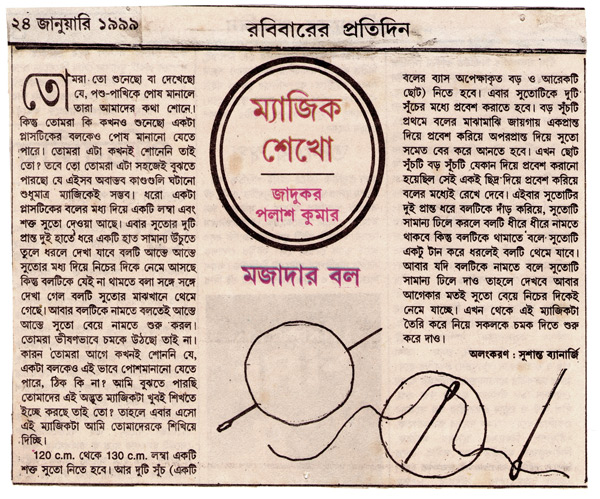 ২৪ জানুয়ারি ১৯৯৯
রবিবারের প্রতিদিন
তোমরা তো শুনেছো বা দেখেছো
যে, পশু-পাখিকে পোষ মানালে
তারা আমাদের কথা শোনে।
কিন্তু তোমরা কি কখনও শুনেছো একটা
প্লাসটিকের বলকেও পোষ মানানো যেতে
পারে। তোমরা এটা কখনই শোনেনি তাই
তো? তবে তো তোমরা এটা সহজেই বুঝতে
পারছো যে এইসব অবাস্তব কাণ্ডগুলি ঘটানো
শুধুমাত্র ম্যাজিকেই সম্ভব। ধরো একটা
প্লাসটিকের বলের মধ্য দিয়ে একটি লম্বা এবং
শক্ত সুতো দেওয়া আছে। এবার সুতোর দুটি
প্রান্ত দুই হাতে ধরে একটি হাত সামান্য উঁচুতে
তুলে ধরলে দেখা যাবে বলটি আস্তে আস্তে
সুতোর মধ্য দিয়ে নিচের দিকে নেমে আসছে
কিন্তু বলটিকে যেই না থামতে বলা সঙ্গে সঙ্গে
দেখা গেল বলটি সুতোর মাঝখানে থেমে
গেছে। আবার বলটিকে নামতে বলতেই আস্তে
আস্তে সুতো বেয়ে নামতে শুরু করল।
তোমরা ভীষণভাবে চমকে উঠছো তাই না।
কারন তোমরা আগে কখনই শোননি যে,
একটা বলকেও এই ভাবে পোশমানানো যেতে
পারে, ঠিক কি না? আমি বুঝতে পারছি
তোমাদের এই অদ্ভুত ম্যাজিকটা খুবই শিখতে
ইচ্ছে করছে তাই তো? তাহলে এবার এসো
এই ম্যাজিকটা আমি তোমাদেরকে শিখিয়ে
দিচ্ছি।
120 c.m. থেকে 130 c.m. লম্বা একটি
শক্ত সুতো নিতে হবে। আর দুটি সূঁচ (একটি
ম্যাজিক
শেখো
জাদুকর
পলাশ কুমার
মজাদার বল
বলের ব্যাস অপেক্ষাকৃত বড় ও আরেকটি
ছোট) নিতে হবে। এবার সুতোটিকে দুটি
সূঁচের মধ্যে প্রবেশ করাতে হবে। বড় সূঁচটি
প্রথমে বলের মাঝামাঝি জায়গায় একপ্রান্ত
দিয়ে প্রবেশ করিয়ে অপরপ্রান্ত দিয়ে সুতো
সমেত বের করে আনতে হবে। এখন ছোট
সূঁচটি বড় সূঁচটি যেকান দিয়ে প্রবেশ করানো
হয়েছিল সেই একই ছিদ্র দিয়ে প্রবেশ করিয়ে
বলের মধ্যেই রেখে দেবে। এইবার সুতোটির
দুই প্রান্ত ধরে বলটিকে দাঁড় করিয়ে, সুতোটি
সামান্য ঢিলে করলে বলটি ধীরে ধীরে নামতে
থাকবে কিন্তু বলটিকে থামাতে বলে সুতোটি
একটু টান করে ধরলেই বলটি থেমে যাবে।
আবার যদি বলটিকে নামতে বলে সুতোটি
সামান্য ঢিলে দাও তাহলে দেখবে আবার
আগেকার মতই সুতো বেয়ে নিচের দিকেই
নেমে যাচ্ছে। এখন থেকে এই ম্যাজিকটা
তৈরি করে নিয়ে সকলকে চমক দিতে শুরু
করে দাও।
অলংকরণ : সুশান্ত ব্যানার্জি